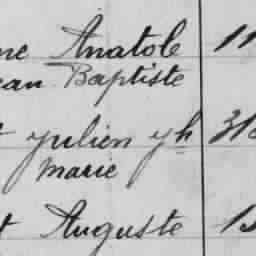 ne Anatole 11
ean Baptiste
t Julien yh 318
Marie
t Auguste 15